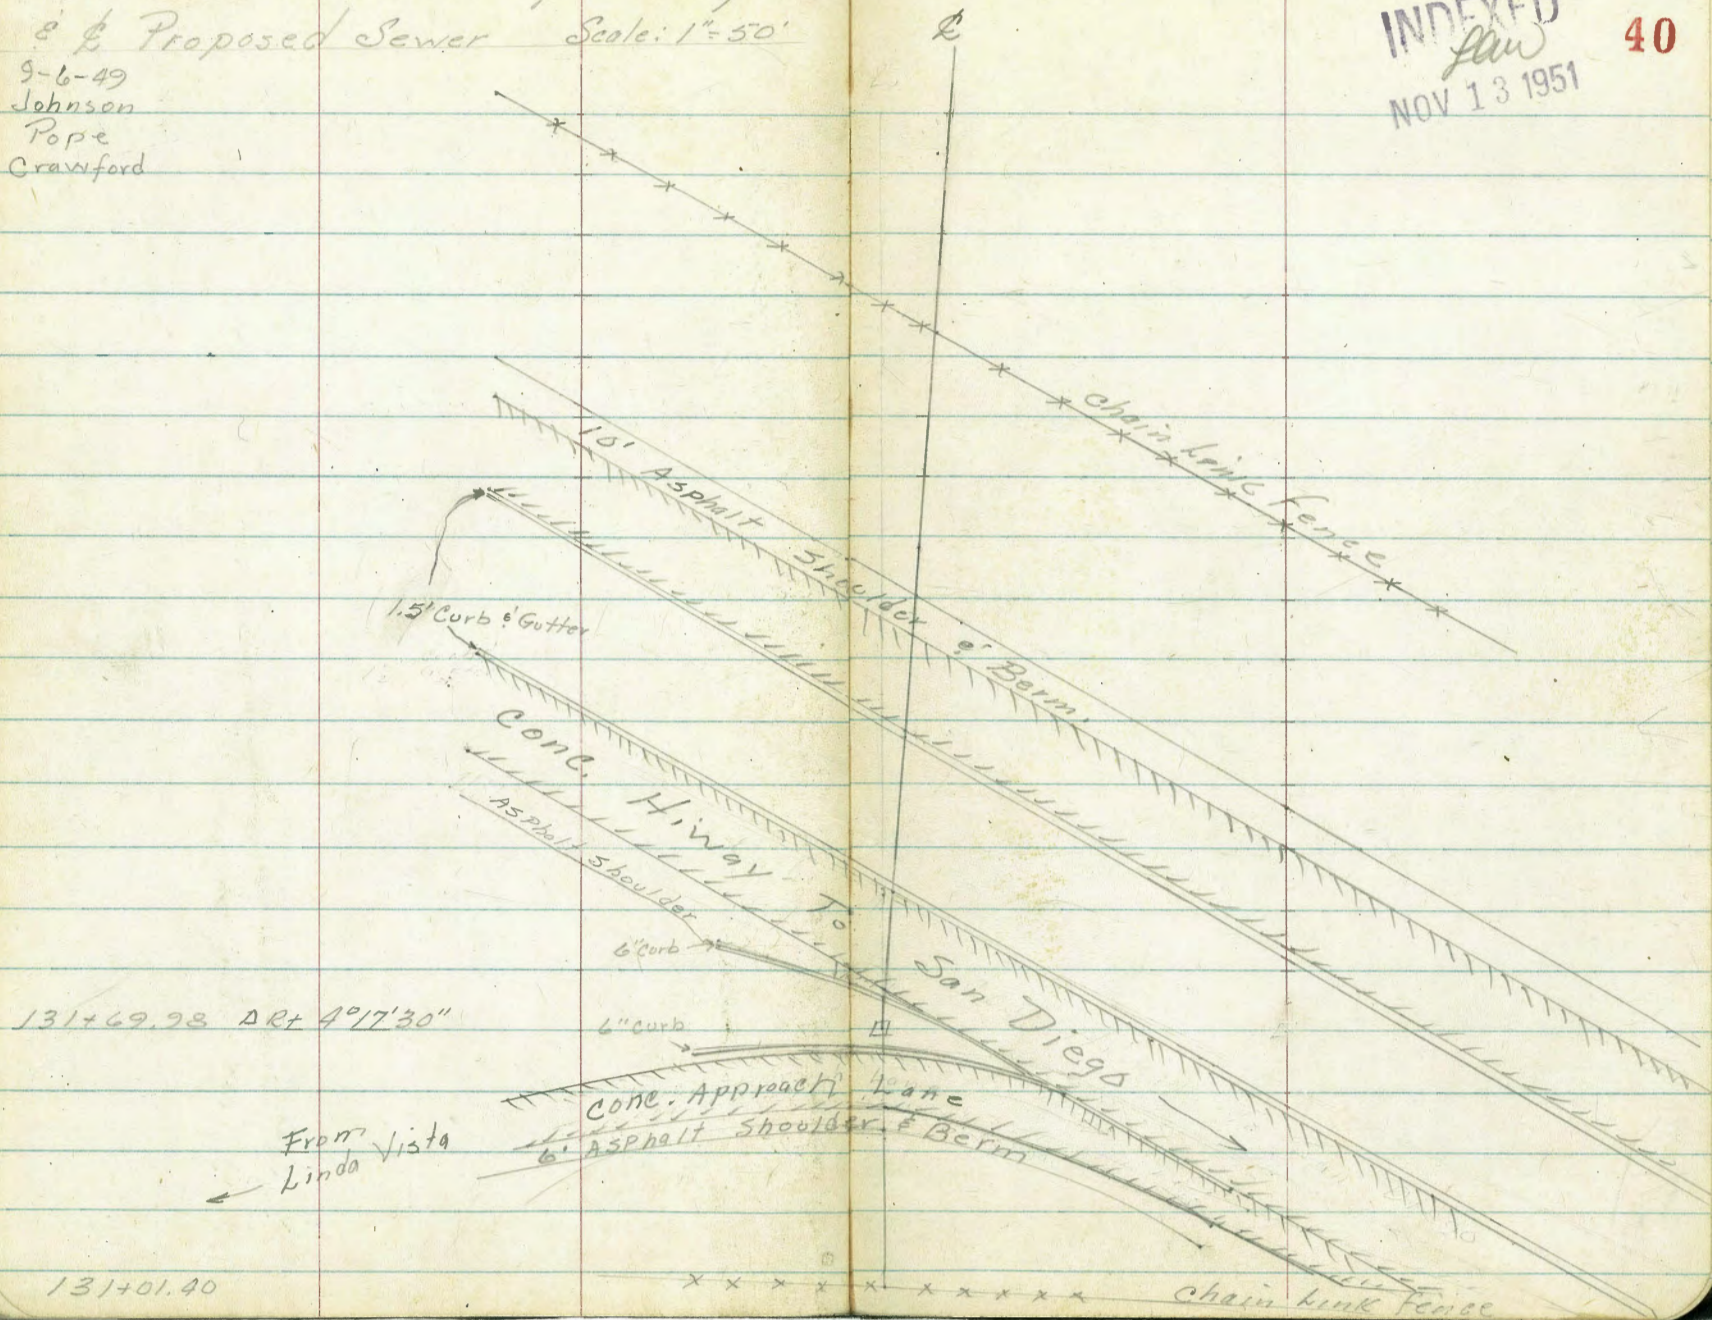 & ℄ Proposed Sewer Scale: 1"=50'
9-6-49
Johnson
Pope
Crawford
℄
INDEXED
NOV 13 1951
40
Chain Link Fence
10' Asphalt Shoulder & Berm.
1.5' Curb & Gutter
Conc. Hiway To San Diego
Asphalt Shoulder
6" Curb
131+69.98 Δ Rt 4°17'30"
6" Curb
Conc. Approach Lane
6' Asphalt Shoulder & Berm
From
Linda Vista
131+01.40
Chain Link Fence